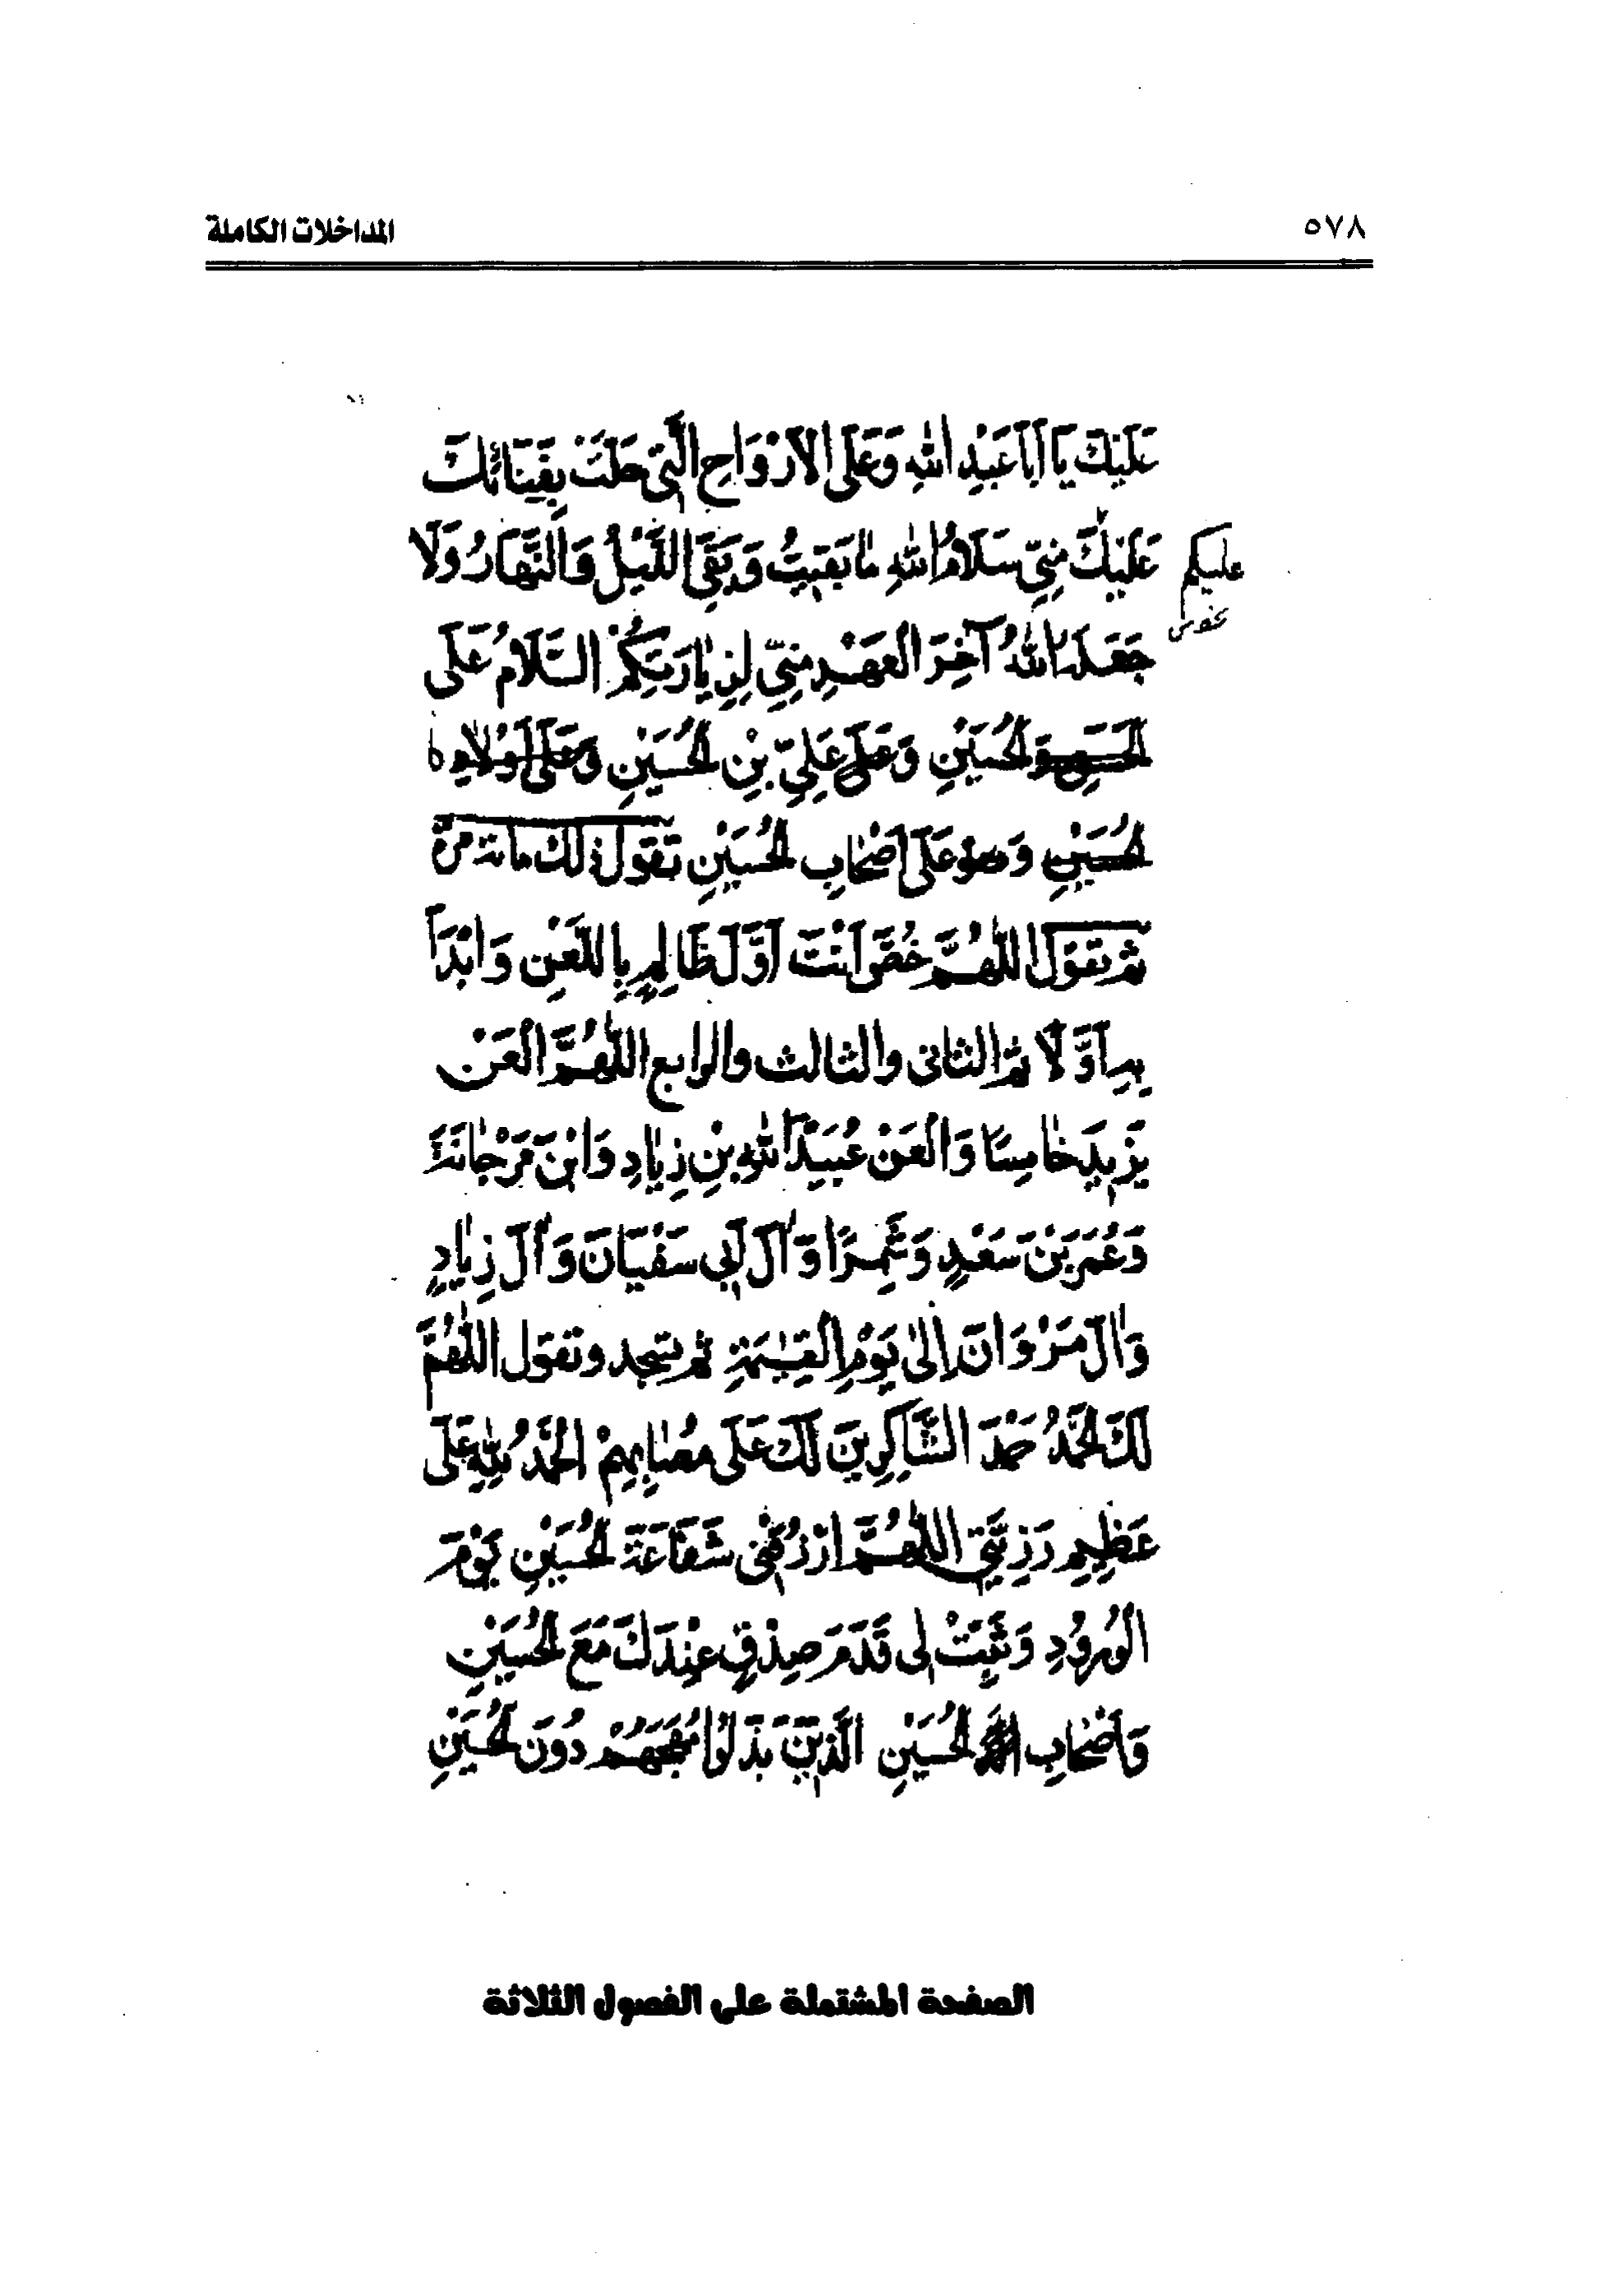 ٥٧٨
المداخلات الكاملة
عَلَيْكَ يَا اَبَا عَبْدِ اللهِ وَعَلَى الْاَرْوَاحِ الَّتِى حَلَّتْ بِفِنَائِكَ
عَلَيْكَ مِنِّى سَلَامُ اللهِ مَا بَقِيتُ وَبَقِىَ اللَّيْلُ وَالنَّهَارُ وَلَا
عليكم
جَعَلَهُ اللهُ آخِرَ الْعَهْدِ مِنِّى لِزِيَارَتِكُمْ السَّلَامُ عَلَى
الْحُسَيْنِ وَعَلَى عَلِىِّ بْنِ الْحُسَيْنِ وَعَلَى اَوْلَادِ
الْحُسَيْنِ وَعَلَى اَصْحَابِ الْحُسَيْنِ تقول ذلك مائة مرة
ثم تقول اللّٰهُمَّ خُصَّ اَنْتَ اَوَّلَ ظَالِمٍ بِاللَّعْنِ وَابْدَأْ
بِهِ اَوَّلًا ثم الثانى والثالث والرابع اللّٰهُمَّ الْعَنْ
يَزِيدَ خَامِسًا وَالْعَنْ عُبَيْدَ اللهِ بْنِ زِيَادٍ وَابْنَ مَرْجَانَةَ
وَعُمَرَ بْنَ سَعْدٍ وَشِمْرًا وَآلَ اَبِى سُفْيَانَ وَآلَ زِيَادٍ
وَآلَ مَرْوَانَ اِلَى يَوْمِ الْقِيٰمَةِ ثم تسجد وتقول اللّٰهُمَّ
لَكَ الْحَمْدُ حَمْدَ الشَّاكِرِينَ لَكَ عَلَى مُصَابِهِمْ الْحَمْدُ لِلّٰهِ عَلَى
عَظِيمِ رَزِيَّتِى اللّٰهُمَّ ارْزُقْنِى شَفَاعَةَ الْحُسَيْنِ يَوْمَ
الْوُرُودِ وَثَبِّتْ لِى قَدَمَ صِدْقٍ عِنْدَكَ مَعَ الْحُسَيْنِ
وَاَصْحَابِ الْحُسَيْنِ الَّذِينَ بَذَلُوا مُهَجَهُمْ دُونَ الْحُسَيْنِ
الصفحة المشتملة على الفصول الثلاثة